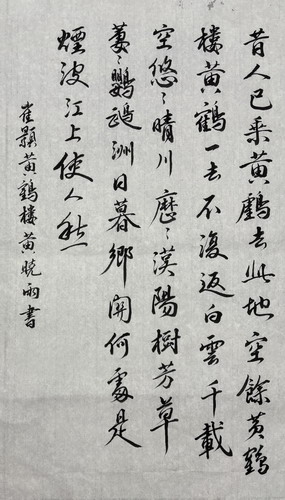 昔人已乘黄鶴去此地空餘黄鶴
樓黄鶴一去不復返白雲千載
空悠々晴川歷々漢陽樹芳草
萋々鸚鵡洲日暮鄉關何處是
煙波江上使人愁
崔顥黄鶴樓黄曉雨書